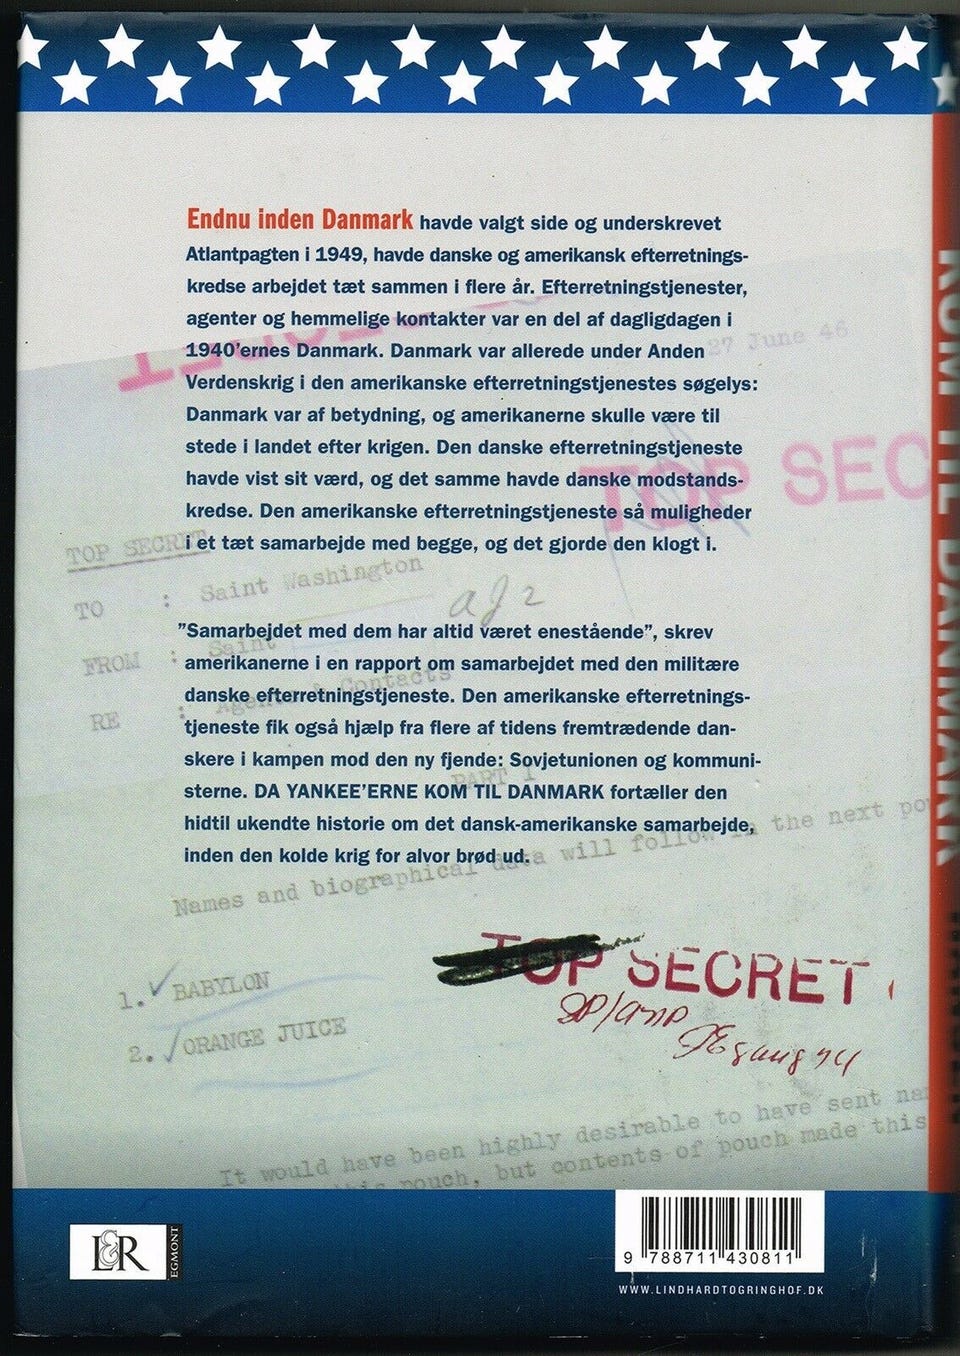 Endnu inden Danmark havde valgt side og underskrevet
Atlantpagten i 1949, havde danske og amerikansk efterretnings-
kredse arbejdet tæt sammen i flere år. Efterretningstjenester,
agenter og hemmelige kontakter var en del af dagligdagen i
1940’ernes Danmark. Danmark var allerede under Anden
Verdenskrig i den amerikanske efterretningstjenestes søgelys:
Danmark var af betydning, og amerikanerne skulle være til
stede i landet efter krigen. Den danske efterretningstjeneste
havde vist sit værd, og det samme havde danske modstands-
kredse. Den amerikanske efterretningstjeneste så muligheder
i et tæt samarbejde med begge, og det gjorde den klogt i.
”Samarbejdet med dem har altid været enestående”, skrev
amerikanerne i en rapport om samarbejdet med den militære
danske efterretningstjeneste. Den amerikanske efterretnings-
tjeneste fik også hjælp fra flere af tidens fremtrædende dan-
skere i kampen mod den ny fjende: Sovjetunionen og kommuni-
sterne. DA YANKEE’ERNE KOM TIL DANMARK fortæller den
hidtil ukendte historie om det dansk-amerikanske samarbejde,
inden den kolde krig for alvor brød ud.
27 June 46
TOP SEC
TOP SECRET
TO : Saint Washington
FROM : Saint
RE : Agents & Contacts
PART I
Names and biographical data will follow in the next po
TOP SECRET
1. BABYLON
2. ORANGE JUICE
It would have been highly desirable to have sent na
this pouch, but contents of pouch made this
L&R
EGMONT
9 788711 430811
WWW.LINDHARDTOGRINGHOF.DK
KOM TIL DANMARK